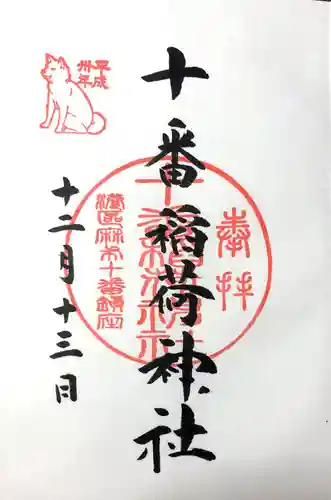 奉拝
十番稲荷神社
十番稲荷神社
港区麻布十番鎮座
平成
卅年
十二月十三日